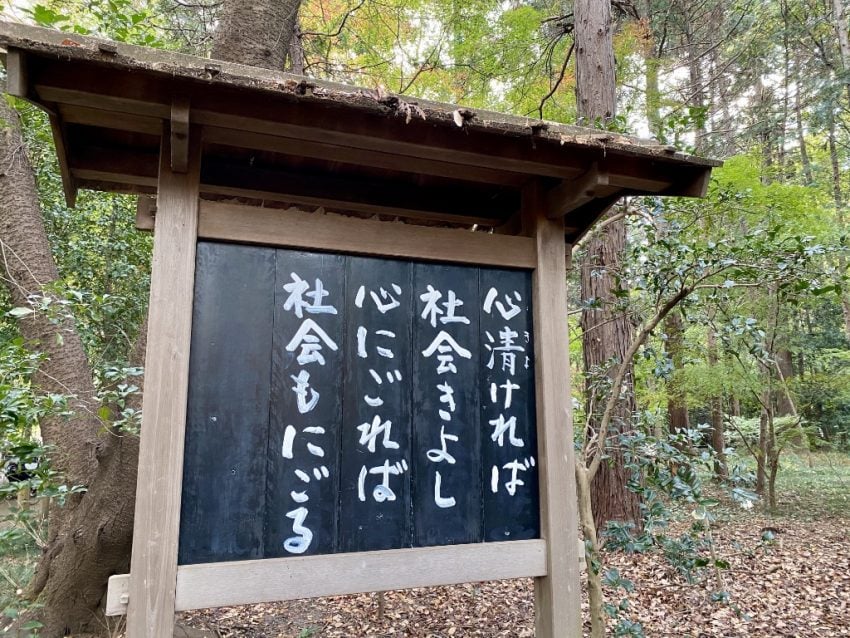 心清ければ
きよ
社会きよし
心にごれば
社会もにごる